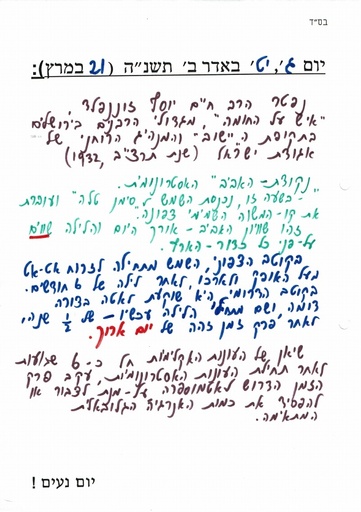 בס"ד
יום ג', יט' באדר ב' תשנ"ה (21 במרץ):
נפטר הרב חיים יוסף זוננפלד,
"איש על החומה", מגדולי הרבנים בירושלים
בתקופת ה"יישוב" והמנהיג הרוחני של
אגודת ישראל (שנת תרצ"ב, 1932)
"נקודת-האביב" האסטרונומית.
- בשעה זו, נכנסת השמש ל"סימן טלה" ועוברת
את קו-המשווה השמימי צפונה.
זהו שוויון האביב - אורך היום והלילה שווים
על-פני כל כדור-הארץ.
בקוטב הצפוני, השמש מתחילה לזרוח אט-אט
מעל האופק ולאורכו, לאחר לילה של 6 חודשים.
בקוטב הדרומי, היא שוקעת לאטה בצורה
דומה, ושם מתחיל הלילה עכשיו - של ½ שנה,
לאחר פרק זמן זהה של יום ארוך.
שיאן של העונות האקלימיות חל כ-6 שבועות
לאחר תחילת העונות האסטרונומיות, עקב פרק
הזמן הדרוש לאטמוספרה על-מנת לצבור או
להפסיד את כמות האנרגיה הגלובאלית
המתאימה.
יום נעים !